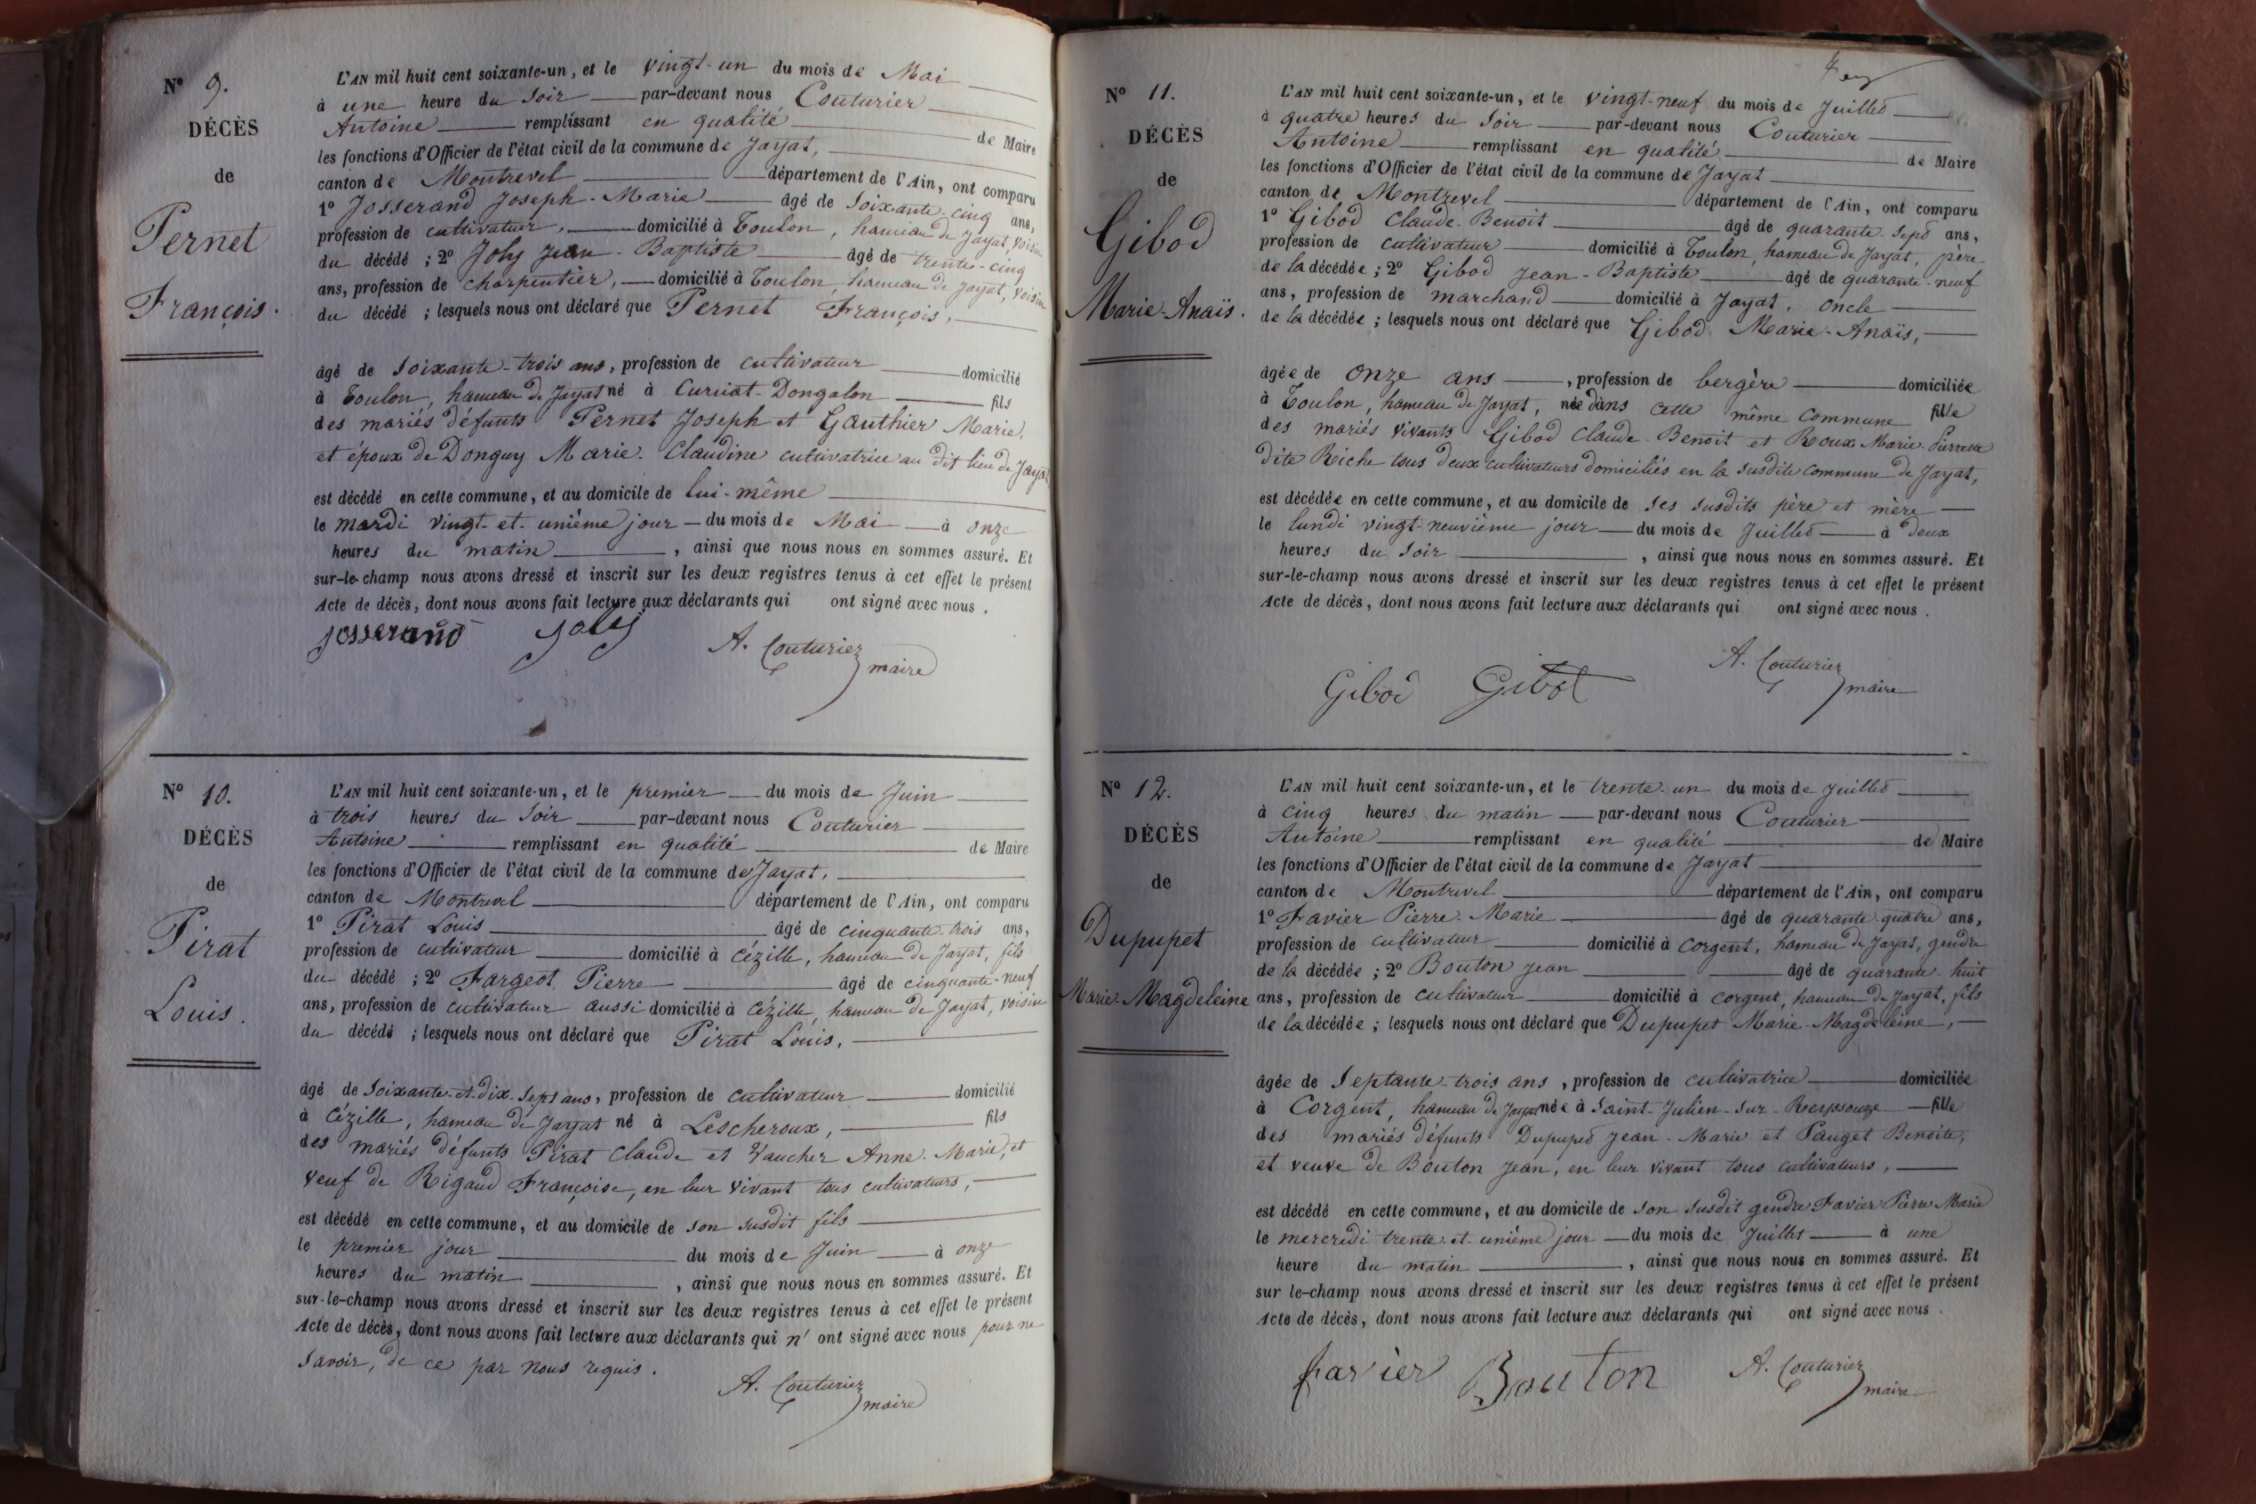 N° 9.
DÉCÈS
de
Pernet
François.
L'AN mil huit cent soixante-un, et le vingt-un du mois de Mai
à une heure du Soir par-devant nous Couturier
Antoine remplissant en qualité de Maire
les fonctions d'Officier de l'état civil de la commune de Jayat,
canton de Montrevel département de l'Ain, ont comparu
1° Josserand Joseph-Marie âgé de Soixante-cinq ans,
profession de cultivateur, domicilié à Toulon, hameau de Jayat, voisin
du décédé ; 2° Joly Jean-Baptiste âgé de trente-cinq
ans, profession de charpentier, domicilié à Toulon, hameau de Jayat, voisin
du décédé ; lesquels nous ont déclaré que Pernet François,
âgé de Soixante-trois ans, profession de cultivateur domicilié
à Toulon, hameau de Jayat né à Curciat-Dongalon fils
des mariés défunts Pernet Joseph et Gauthier Marie,
et époux de Donguy Marie-Claudine cultivatrice au dit lieu de Jayat
est décédé en cette commune, et au domicile de lui-même
le mardi vingt-et-unième jour du mois de Mai à onze
heures du matin, ainsi que nous nous en sommes assuré. Et
sur-le-champ nous avons dressé et inscrit sur les deux registres tenus à cet effet le présent
Acte de décès, dont nous avons fait lecture aux déclarants qui ont signé avec nous.
Josserand Joly A. Couturier
maire
N° 10.
DÉCÈS
de
Pirat
Louis.
L'AN mil huit cent soixante-un, et le premier du mois de Juin
à trois heures du Soir par-devant nous Couturier
Antoine remplissant en qualité de Maire
les fonctions d'Officier de l'état civil de la commune de Jayat,
canton de Montrevel département de l'Ain, ont comparu
1° Pirat Louis âgé de cinquante-trois ans,
profession de cultivateur domicilié à Cézille, hameau de Jayat, fils
du décédé ; 2° Fargeot Pierre âgé de cinquante-neuf
ans, profession de cultivateur aussi domicilié à Cézille, hameau de Jayat, voisin
du décédé ; lesquels nous ont déclaré que Pirat Louis,
âgé de Soixante-et-dix-Sept ans, profession de cultivateur domicilié
à Cézille, hameau de Jayat né à Lescheroux, fils
des mariés défunts Pirat Claude et Vaucher Anne-Marie, et
veuf de Rigaud Françoise, en leur vivant tous cultivateurs,
est décédé en cette commune, et au domicile de son susdit fils
le premier jour du mois de Juin à onze
heures du matin, ainsi que nous nous en sommes assuré. Et
sur-le-champ nous avons dressé et inscrit sur les deux registres tenus à cet effet le présent
Acte de décès, dont nous avons fait lecture aux déclarants qui n'ont signé avec nous pour ne
Savoir, de ce par nous requis.
A. Couturier
maire
N° 11.
DÉCÈS
de
Gibod
Marie-Anaïs.
L'AN mil huit cent soixante-un, et le vingt-neuf du mois de Juillet
à quatre heures du Soir par-devant nous Couturier
Antoine remplissant en qualité de Maire
les fonctions d'Officier de l'état civil de la commune de Jayat
canton de Montrevel département de l'Ain, ont comparu
1° Gibod Claude-Benoit âgé de quarante-sept ans,
profession de cultivateur domicilié à Toulon, hameau de Jayat, père
de la décédée ; 2° Gibod Jean-Baptiste âgé de quarante-neuf
ans, profession de marchand domicilié à Jayat, oncle
de la décédée ; lesquels nous ont déclaré que Gibod Marie-Anaïs,
âgée de onze ans, profession de bergère domiciliée
à Toulon, hameau de Jayat, née dans cette même commune fille
des mariés vivants Gibod Claude-Benoit et Roux Marie-Pierrette
dite Riche tous deux cultivateurs domiciliés en la susdite commune de Jayat,
est décédée en cette commune, et au domicile de ses susdits père et mère
le lundi vingt-neuvième jour du mois de Juillet à deux
heures du Soir, ainsi que nous nous en sommes assuré. Et
sur-le-champ nous avons dressé et inscrit sur les deux registres tenus à cet effet le présent
Acte de décès, dont nous avons fait lecture aux déclarants qui ont signé avec nous.
Gibod Gibod A. Couturier
maire
N° 12.
DÉCÈS
de
Dupupet
Marie-Magdeleine
L'AN mil huit cent soixante-un, et le trente-un du mois de Juillet
à cinq heures du matin par-devant nous Couturier
Antoine remplissant en qualité de Maire
les fonctions d'Officier de l'état civil de la commune de Jayat
canton de Montrevel département de l'Ain, ont comparu
1° Favier Pierre-Marie âgé de quarante-quatre ans,
profession de cultivateur domicilié à Corgent, hameau de Jayat, gendre
de la décédée ; 2° Bouton Jean âgé de quarante-huit
ans, profession de cultivateur domicilié à corgent, hameau de Jayat, fils
de la décédée ; lesquels nous ont déclaré que Dupupet Marie-Magdeleine,
âgée de Septante-trois ans, profession de cultivatrice domiciliée
à Corgent, hameau de Jayat née à Saint-Julien-Sur-Reyssouze fille
des mariés défunts Dupupet Jean-Marie et Pauget Benoite,
et veuve de Bouton Jean, en leur vivant tous cultivateurs,
est décédé en cette commune, et au domicile de son susdit gendre Favier Pierre Marie
le mercredi trente-et-unième jour du mois de Juillet à une
heure du matin, ainsi que nous nous en sommes assuré. Et
sur le-champ nous avons dressé et inscrit sur les deux registres tenus à cet effet le présent
Acte de décès, dont nous avons fait lecture aux déclarants qui ont signé avec nous.
favier Bouton A. Couturier
maire